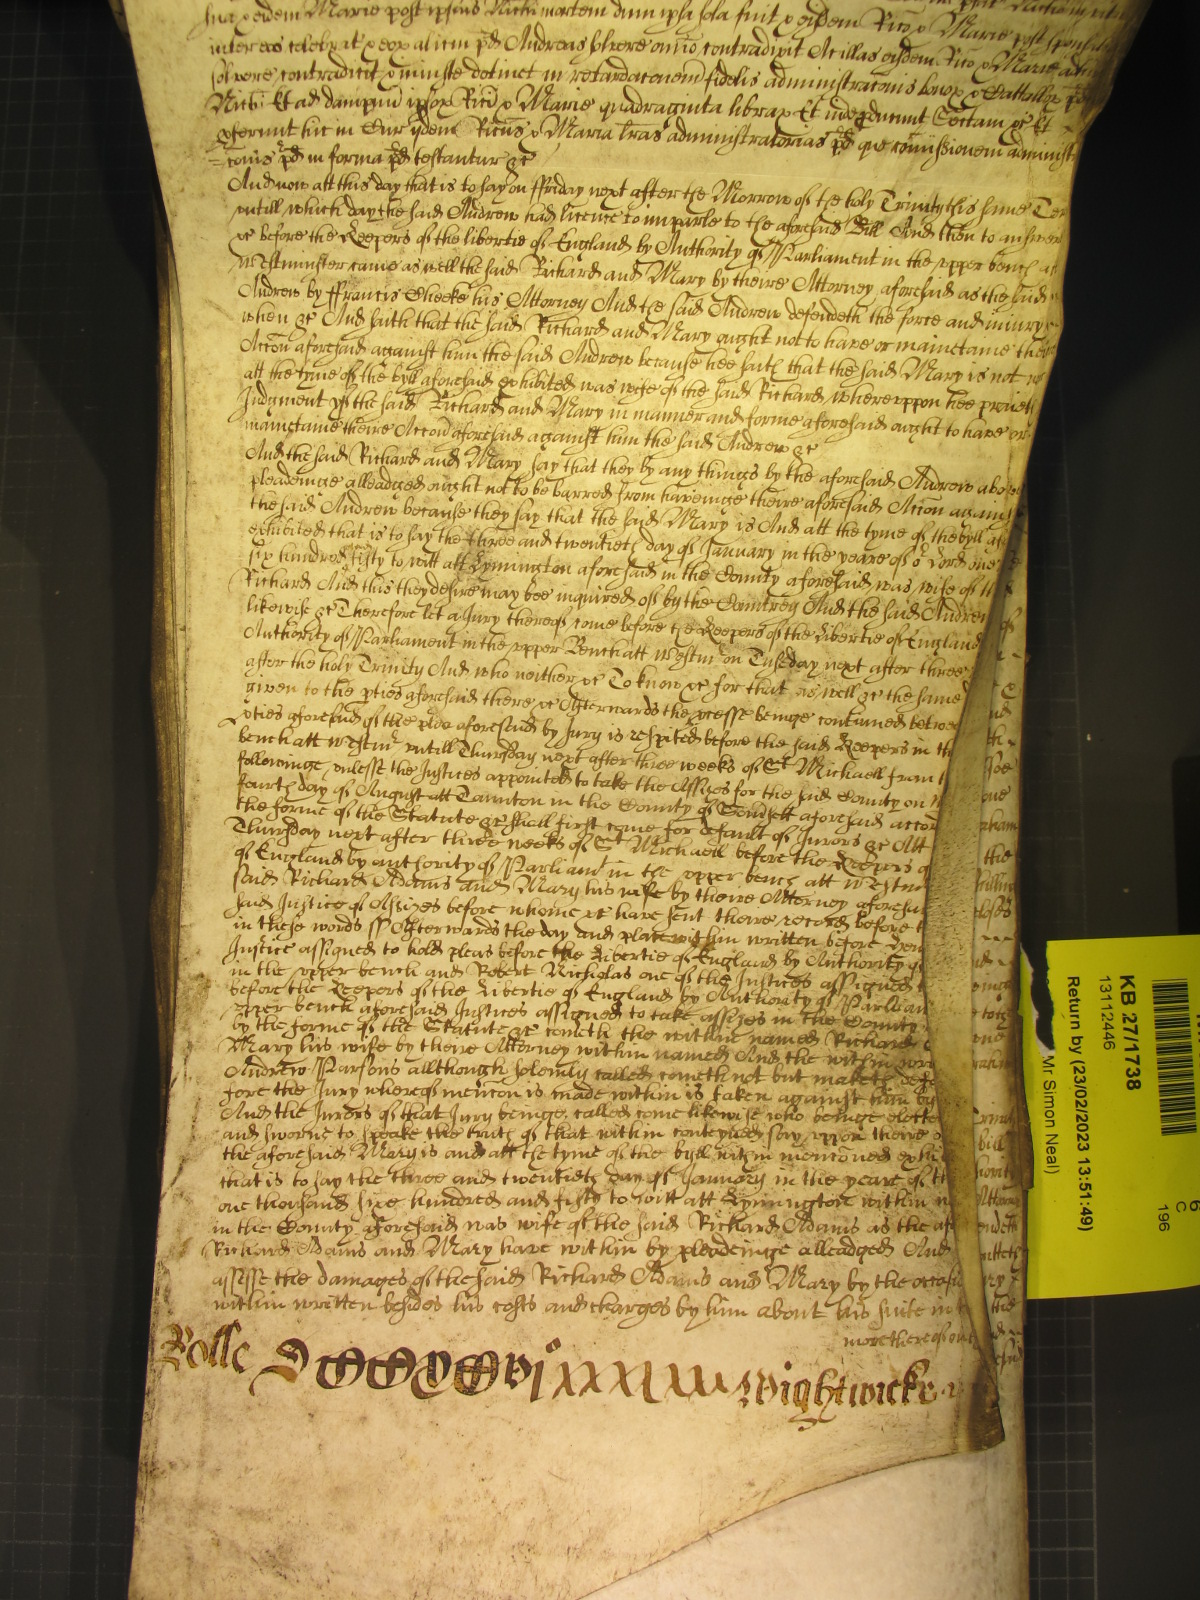 sua & eidem Marie post ipsius Nichi mortem dum ipsa sola fuit & eisdem Rico & Marie post sponsalia
inter eos celebrat pred Andreas solvere omino contradixit Ac illas eisdem Rico & Marie adhuc
solvere contradicit & iniuste detinet in retardacoem fidelis administracois bonor & Catallor pd
Nichi Et ad dampnu ipsor Rici & Marie quadraginta librar Et inde producunt Sectam &c Et
pferunt hic in Cur ijdem Ricus & Maria lras administratorias pd que comissionem administra
=cois pd in forma pd testantur &c
And now att this day that is to say on ffriday next after the Morrow of the holy Trinity this same Ter
untill which day the said Andrew had licence to imparle to the aforesaid Bill And then to answer
&c before the Keepers of the libertie of England by Authority of Parliament in the upper bench att
Westminster came as well the said Richard and Mary by theire Attorney aforesaid as the said
Andrew by ffrancis Cheeke his Attorney And the said Andrew defendeth the force and iniury
when &c And saith that the said Richard and Mary ought not to have or mainetaine theire
Accon aforesaid against him the said Andrew because hee saith that the said Mary is not nor
att the tyme of the byll aforesaid exhibited was wife of the said Richard Whereuppon hee prayeth
Judgment yf the said Richard and Mary in manner and forme aforesaid ought to have or
mainetaine theire Accon aforesaid against him the said Andrew &c
And the said Richard and Mary say that they by any things by the aforesaid Andrew above
pleadeinge alleadged ought not to be barred from haveinge theire aforesaid Accon against
the said Andrew because they say that the said Mary is And att the tyme of the byll afo
exhibited that is to say the three and twentieth day of January in the yeare of or Lord one
six hundred fifty to witt att Lymington aforesaid in the County aforesaid was wife of th
Richard And this they desire may bee inquired of by the Countrey And the said Andrew
likewise &c Therefore let a Jury thereof come before the Keepers of the Libertie of England
Authority of Parliament in the upper Bench att Westmr on Tuseday next after three
after the holy Trinity And who neither &c To know &c for that as well &c the same
given to the pties aforesaid there &c Afterwards the pcesse beinge continued betwee
pties aforesaid of the plea aforesaid by Jury is respited before the said Keepers in th
bench att Westmr untill Thursday next after three weeks of St Michaell from t
followinge unlesse the Justices appointed to take the Assizes for the said County on
fourth day of August att Taunton in the County of Somsett aforesaid accord
the forme of the Statute &c shall first come for default of Jurors &c Att
Thursday next after three weeks of St Michaell before the Keepers o
of England by authority of Parliamt in the upper bench att Westmr
said Richard Adams and Mary his wife by theire Attorney aforesaid
said Justice of Assizes before whome &c have sent theire record before t
in these words ss Afterwards the day and place within written before
Justice assigned to hold pleas before the Libertie of England by Authority of
in the upper bench and Robert Nicholas one of the Justices assigned t
before the Keepers of the Libertie of England by Authority of Parliam
upper bench aforesaid Justices assigned to take assizes in the County
by the forme of the Statute &c cometh the within named Richard
Mary his wife by theire Attorney within named And the within
Andrew Parsons allthough solemnly called cometh not but maketh defa
fore the Jury whereof mencon is made within is taken against him by
And the Jurors of that Jury beinge called come likewise who beinge electe
and sworne to speake the truth of that within conteyned say uppon theire o
the aforesaid Mary is and att the tyme of the byll within menconed exhi
that is to say the three and twentieth day of January in the yeare of th
one thousand sixe hundred and fifty to witt att Lymington within
in the County aforesaid was wife of the said Richard Adams as the afo
Richard Adams and Mary have within by pleadeinge alleadged And
assesse the damages of the said Richard Adams and Mary by the occasi
within written besides his costs and charges by him about his suite in t
more thereof
Rolle xxxxiii Wightwicke
KB 27/1738
13112446
Return by (23/02/2023 13:51:49)
Mr Simon Neal)
C
196